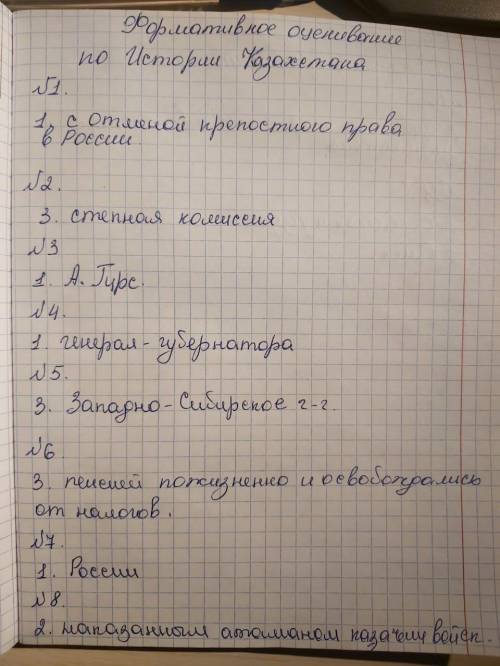 Формативное оценивание
по Истории Казахстана
№1.
1. с отменой крепостного права
в России.
№2.
3. степная комиссия
№3
1. А. Гирс.
№4.
1. генерал-губернатора
№5.
3. Западно-Сибирское г-г.
№6
3. пенсией пожизненно и освобождались
от налогов.
№7.
1. России
№8.
2. наказанным атаманом казачьих войск.